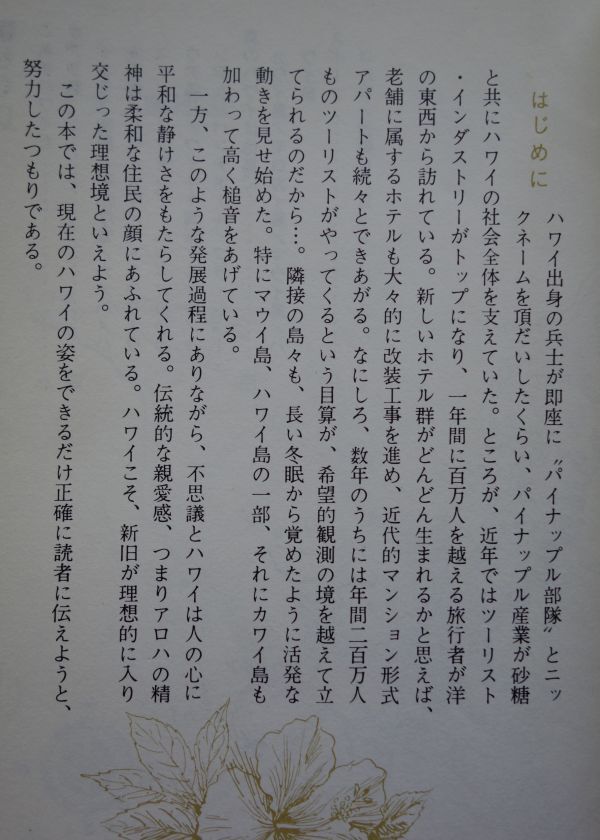 はじめに
ハワイ出身の兵士が即座に〝パイナップル部隊〟とニッ
クネームを頂だいしたくらい、パイナップル産業が砂糖
と共にハワイの社会全体を支えていた。ところが、近年ではツーリスト
・インダストリーがトップになり、一年間に百万人を越える旅行者が洋
の東西から訪れている。新しいホテル群がどんどん生まれるかと思えば、
老舗に属するホテルも大々的に改装工事を進め、近代的マンション形式
アパートも続々とできあがる。なにしろ、数年のうちには年間二百万人
ものツーリストがやってくるという目算が、希望的観測の境を越えて立
てられるのだから…。隣接の島々も、長い冬眠から覚めたように活発な
動きを見せ始めた。特にマウイ島、ハワイ島の一部、それにカワイ島も
加わって高く槌音をあげている。
一方、このような発展過程にありながら、不思議とハワイは人の心に
平和な静けさをもたらしてくれる。伝統的な親愛感、つまりアロハの精
神は柔和な住民の顔にあふれている。ハワイこそ、新旧が理想的に入り
交じった理想境といえよう。
この本では、現在のハワイの姿をできるだけ正確に読者に伝えようと、
努力したつもりである。